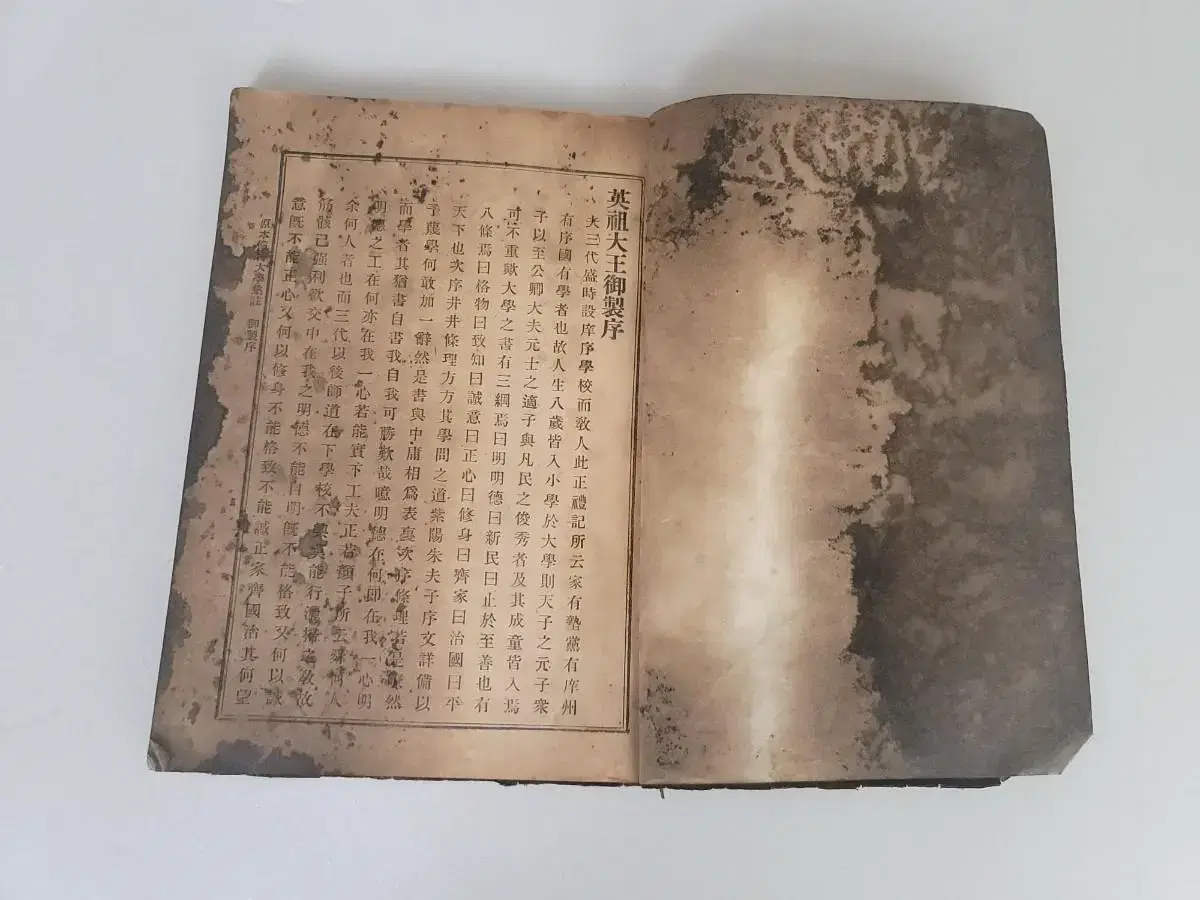 英祖大王御製序
夫三代盛時設庠序學校而敎人此正禮記所云家有塾黨有庠州
有序國有學者也故人生八歲皆入小學於大學則天子之元子衆
子以至公卿大夫元士之適子與凡民之俊秀者及其成童皆入焉
可不重歟大學之書有三綱焉曰明明德曰新民曰止於至善也有
八條焉曰格物曰致知曰誠意曰正心曰修身曰齊家曰治國曰平
天下也次序井井條理方方其學問之道紫陽朱夫子序文詳備以
予蔑學何敢加一辭然是書與中庸相爲表裏次序條理若是瞭然
而學者其猶書自書我自我可勝歎哉噫明德在何卽在我一心明
明德之工在何亦在我一心若能實下工夫正若顏子所云舜何人
余何人者也而三代以後師道在下學校不興莫能行灑掃之敎故
筋骸已强利欲交中在我之明德不能自明旣不能格致又何以誠
意旣不能正心又何以修身不能格致不能誠正家齊國治其何望
原本備旨大學集註 御製序 五